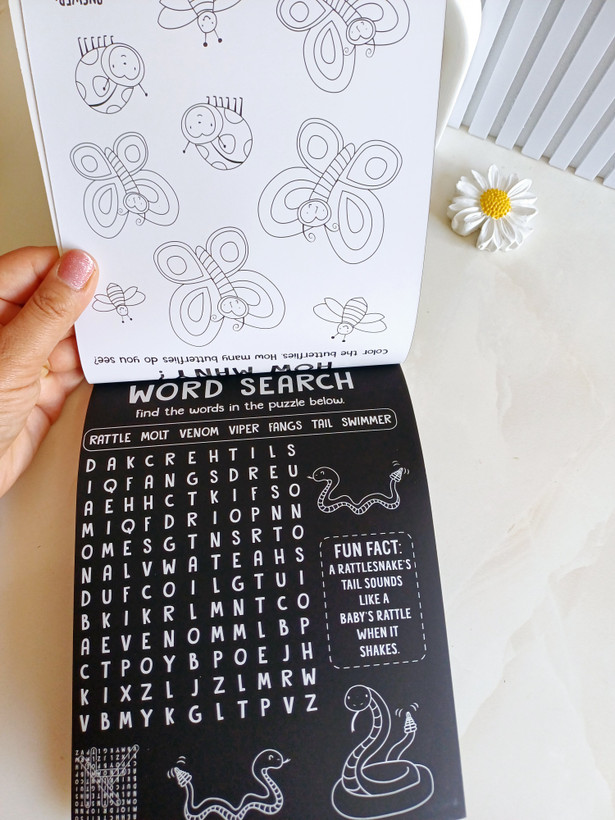 ANSWER:
Color the butterflies. How many butterflies do you see?
HOW MANY?
WORD SEARCH
Find the words in the puzzle below.
RATTLE MOLT VENOM VIPER FANGS TAIL SWIMMER
D A K C R E H T I L S
I Q F A N G S D R E U
A E H H C T K I F S O
M I Q F D R I O P N N
O M E S G T N S R T O
N A L V W A T E A H S
D U F C O I L G T U I
B K I K R L M N T C O
A E V E N O M M L B P
C T P O Y B P O E J H
K I X Z L J Z L M R W
V B M Y K G L T P V Z
FUN FACT:
A RATTLESNAKE'S
TAIL SOUNDS
LIKE A
BABY'S RATTLE
WHEN IT
SHAKES.